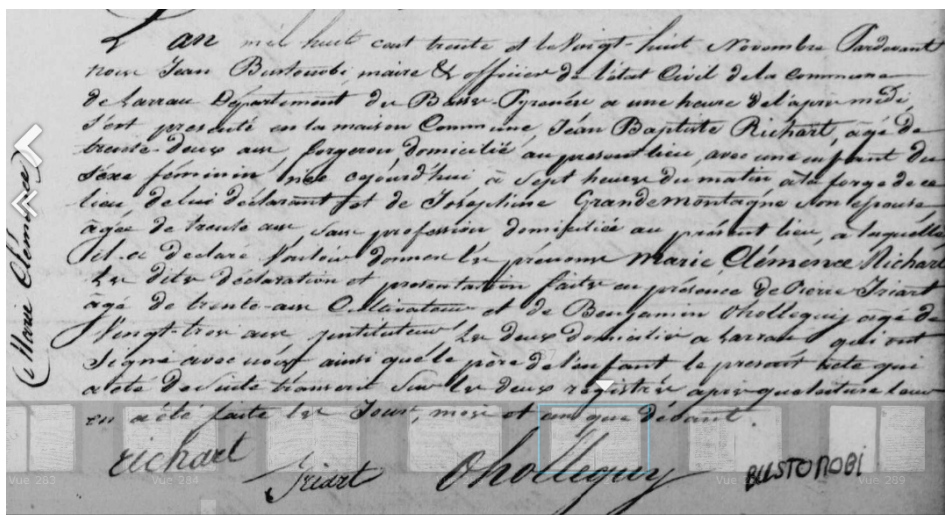 L'an mil huit cent trente et le Vingt-huit Novembre Pardevant
nous Jean Bustonobi maire & officier de l'état Civil de la commune
de Larrau Département des Basses Pyrenées a une heure de l'après midi,
s'est presenté en la maison Commune, Jean Baptiste Richart, âgé de
trente-deux ans forgeron, domicilié au present lieu, avec une enfant du
sexe féminin née cejourd'hui à Sept heures du matin à la forge de ce
lieu de lui déclarant et de Joséphine Grandemontagne son epouse
âgée de trente ans sans profession domiciliée au présent lieu, a laquelle
il a declaré Vouloir donner les prenoms Marie Clémence Richart
Les dites déclaration et presentation faites en présence de Pierre Iriart
agé de trente-ans Cultivateur et de Benjamin Oholleguy agé de
Vingt-trois ans instituteur Les deux domiciliés a Larrau qui ont
signé avec nous ainsi que le père de l'enfant le present acte qui
a été de suite transcrit sur les deux registres après que lecture leur
en a été faite les Jour, mois et an que dévant.
(Marie Clémence)
richart
Iriart
Oholleguy
BUSTONOBI
Vue 283
Vue 284
Vue 289